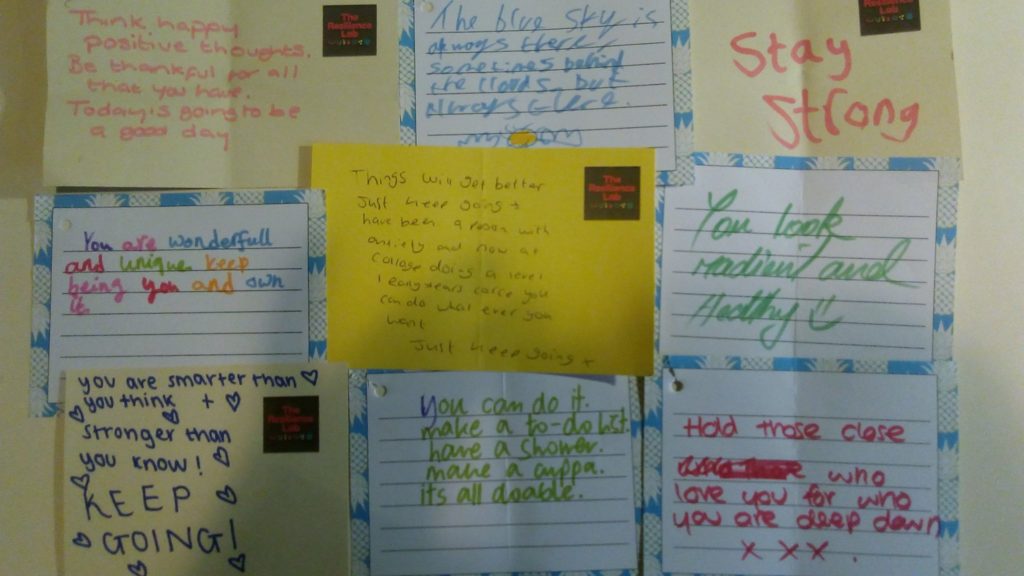 Think happy
positive thoughts.
Be thankful for all
that you have.
Today is going to be
a good day
The
Resilience
Lab
The blue sky is
always there,
sometimes behind
the clouds, but
always there.
Stay
Strong
You are wonderfull
and unique keep
being you and own
it.
Things will get better
Just keep going +
have been a person with
anxiety and now at
collage doing a level
1 early years corce you
can do what ever you
want
Just keep going +
The
Resilience
Lab
You look
radient and
Healthy
you are smarter than
you think +
stronger than
you know!
KEEP
GOING!
The
Resilience
Lab
You can do it.
make a to-do list.
have a shower.
make a cuppa.
its all doable.
Hold those close
who
love you for who
you are deep down
x x x .